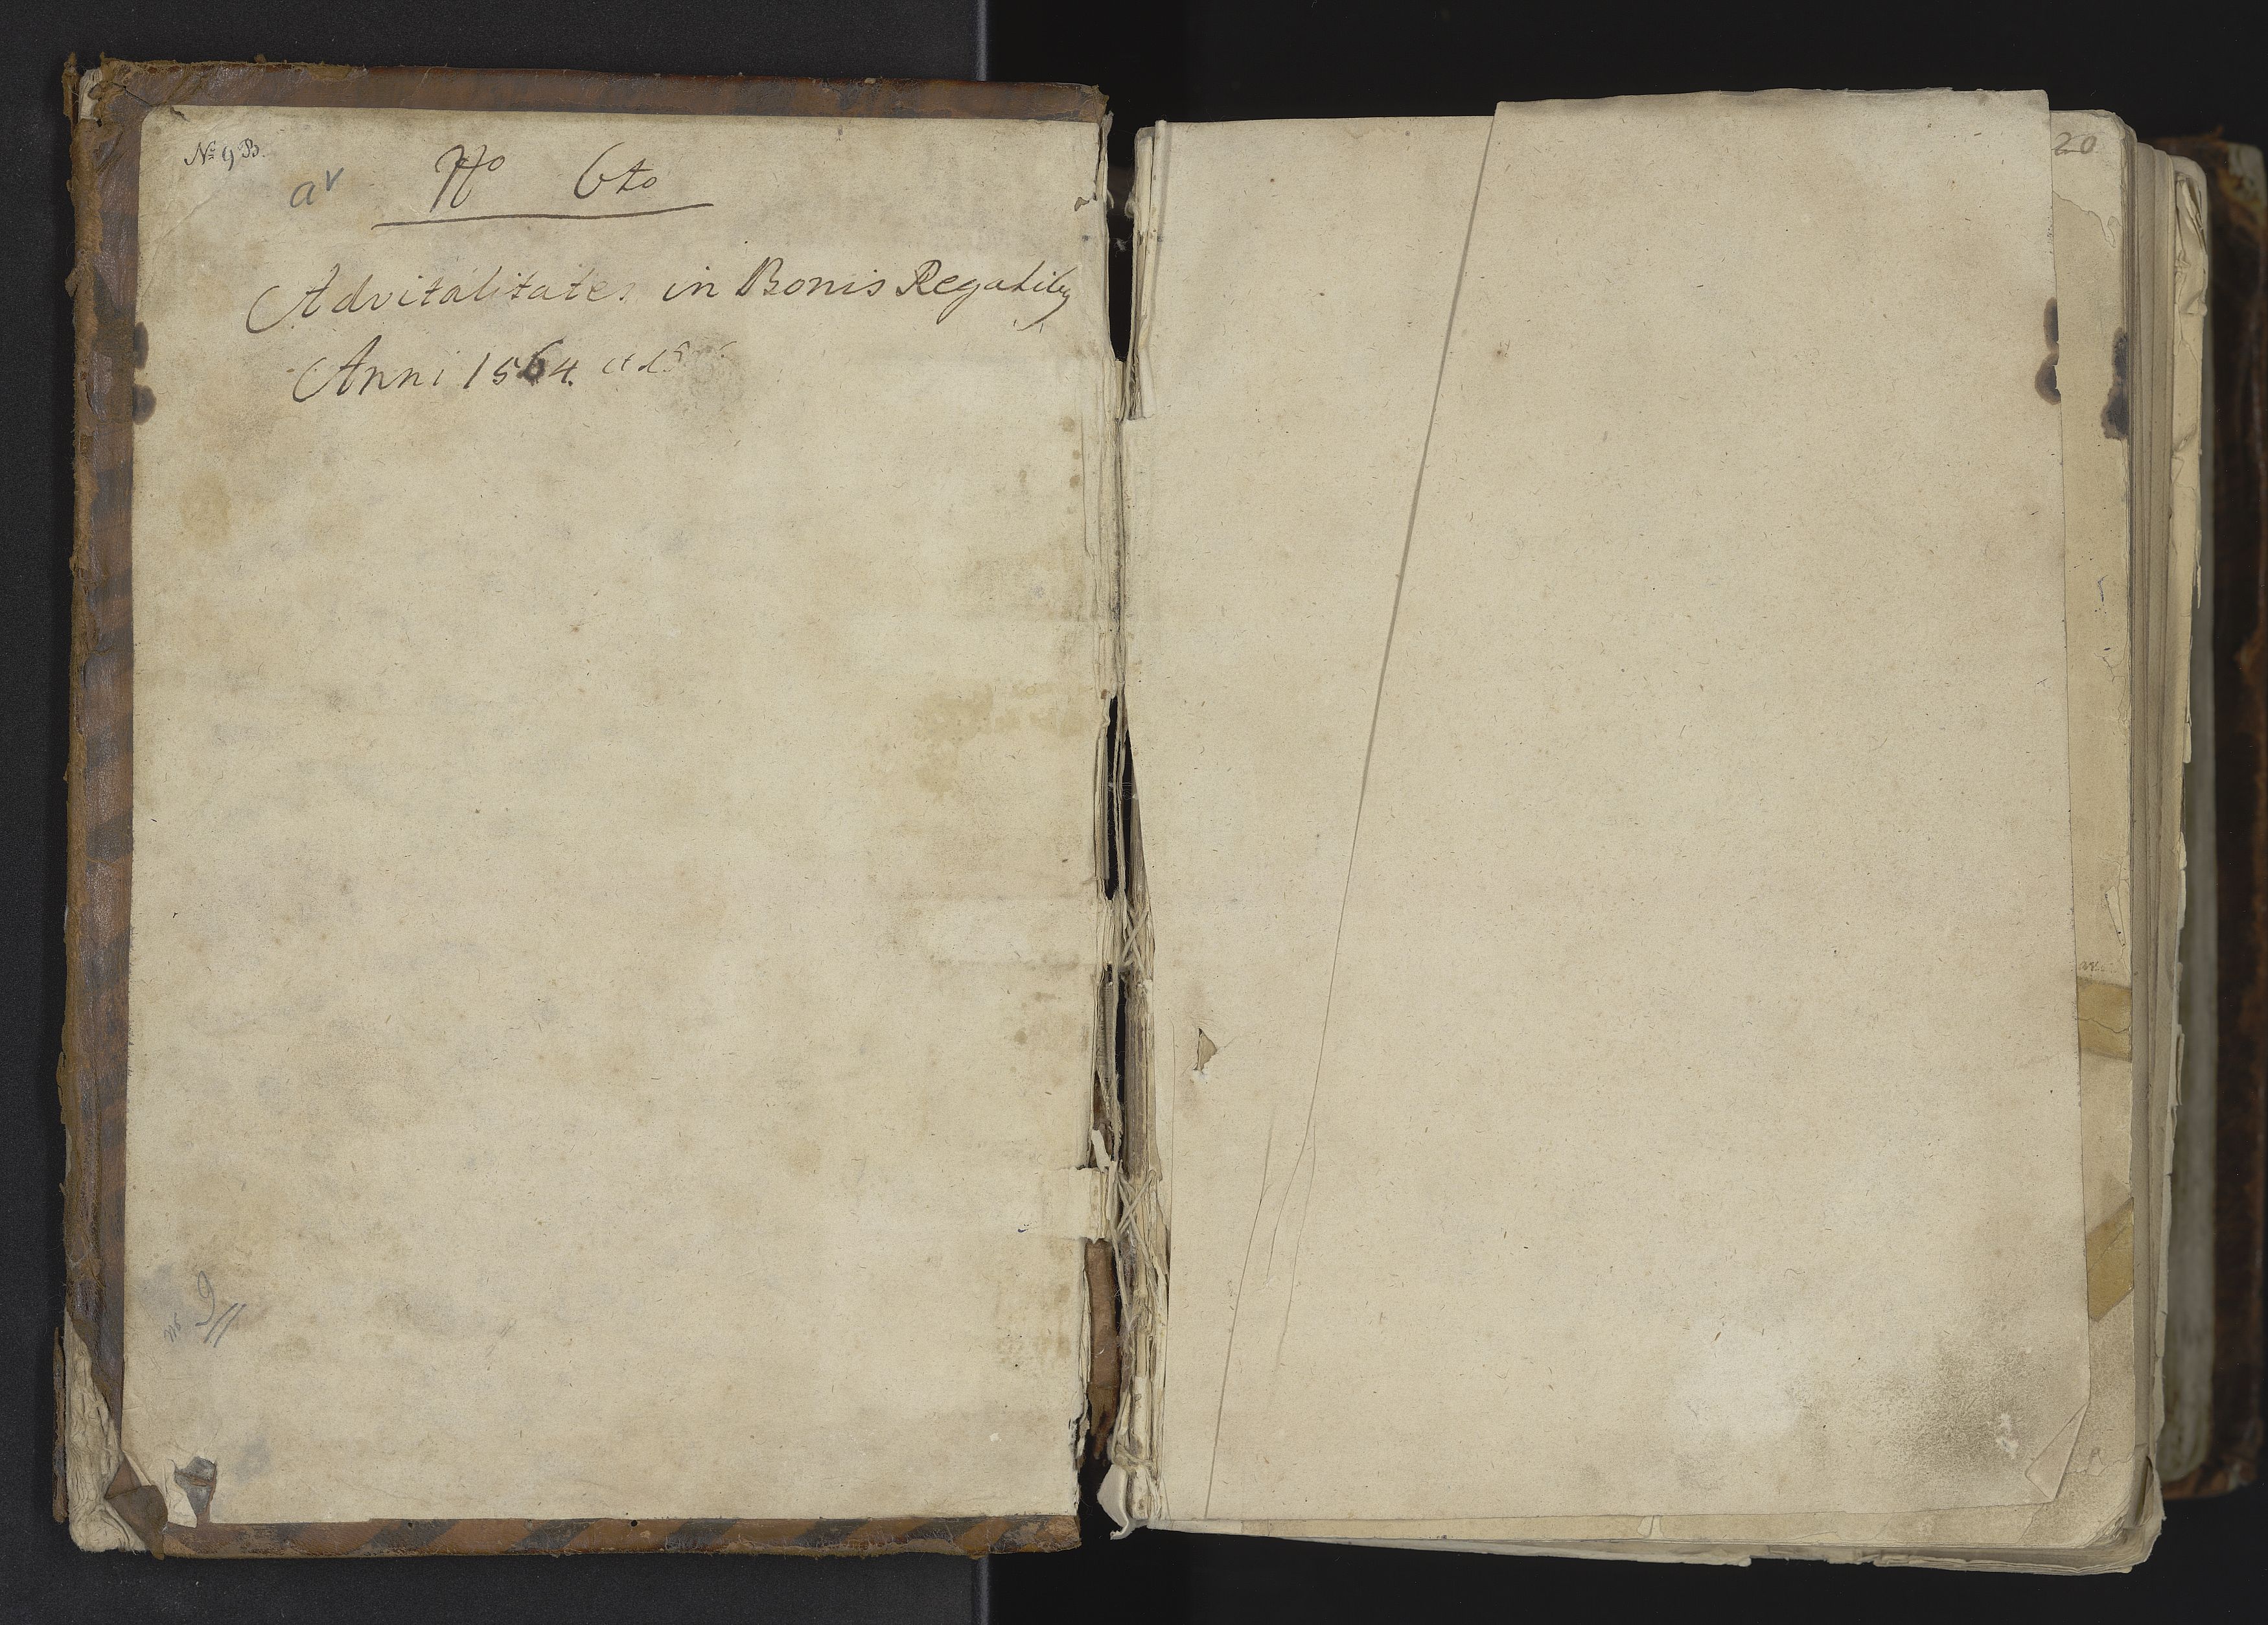 No 9 B.
av
No 6to
Advitalitates in Bonis Regalibq
Anni 1564.
9
20